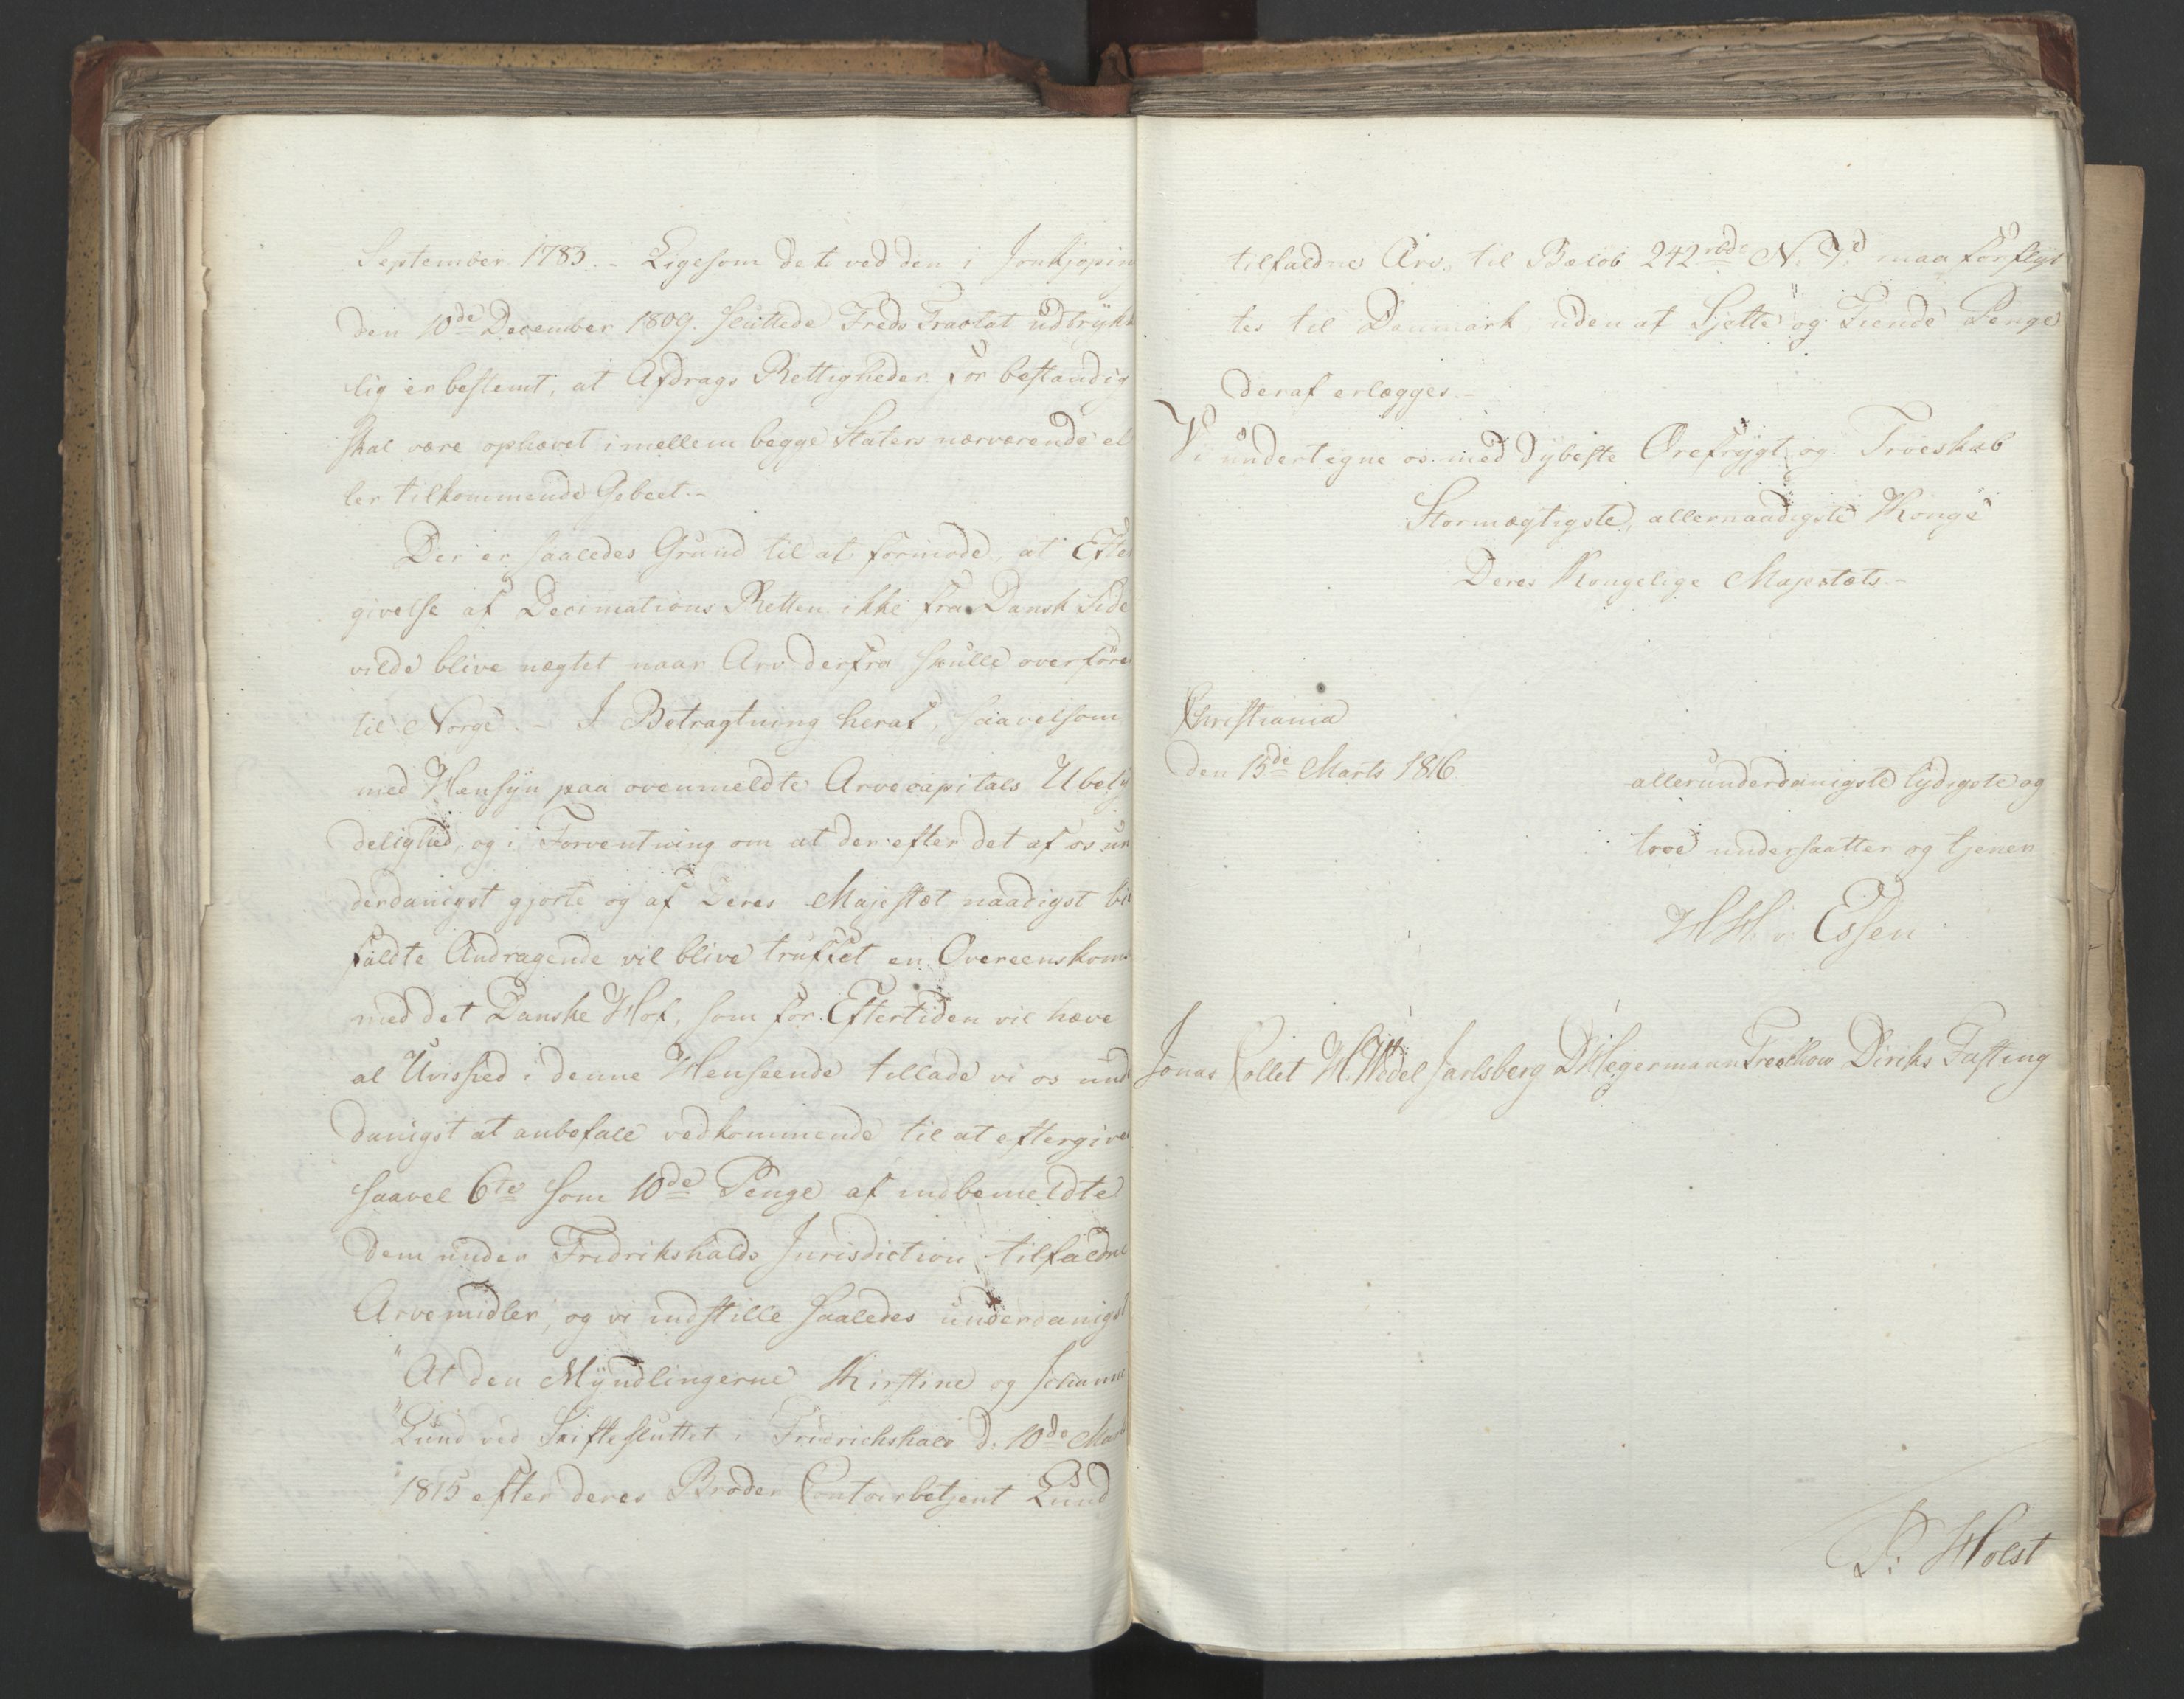 September 1783. – Ligesom det ved den i Jonkjøpin
den 10de December 1809. sluttede Freds Tractat udtrykk
lig er bestemt, at Afdrags Rettigheder for bestandig
skal være ophævet imellem begge Staters nærværende el
ler tilkommende Gebeet. –
Der er saaledes Grund til at formode, at Efter
givelse af Decimations Retten ikke fra Dansk Side
vilde blive nægtet naar Arv derfra skulle overføre
til Norge. – I Betragtning heraf, saavelsom
med Hensyn paa ovenmeldte Arvecapitals Ubety
delighed, og i Forventning om at der efter det af os un
derdanigst gjorte og af Deres Majestæt naadigst bi
faldte Andragende vil blive truffet en Overeenskom
med det Danske Hof, som for Eftertiden vil hæve
al Uvished i denne Henseende tillade vi os und
danigst at anbefale vedkommende til at eftergive
saavel 6te som 10de Penge af indbemeldte
dem under Fredrikshalds Jurisdiction tilfaldne
Arvemidler, og vi indstille saaledes underdanigst
"At den Myndlingerne Kirstine og Johanne
"Lund ved Skiftesluttet i Fridrichshald d. 10de Mar
"1815 efter deres Broder Contoirbetjent Lund
tilfaldne Arv, til Beløb 242 rbd N. V. maa forflyt
tes til Danmark, uden at Sjette og Tiende Penge
deraf erlægges. –
Vi undertegne os med dybeste Ærefrygt og Troeskab
Stormægtigste, allernaadigste Konge
Deres Kongelige Majestæts –
Christiania
den 15de Marts 1816
allerunderdanigste lydigste og
troe undersaatter og tjener
H H. v. Essen
Jonas Collet H. Wedel Jarlsberg D Hegermann Treschow Diriks Fasting
P. Holst